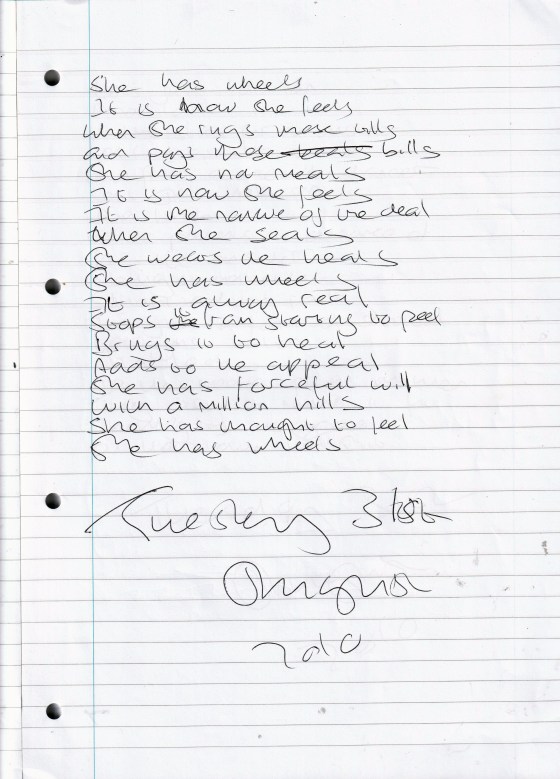 She has wheels
It is how she feels
When she rings those bills
and pays those bills
She has no meals
It is how she feels
It is the nature of the deal
When she seals
She wears the heals
She has wheels
It is always real
Stops it from starting to peel
Brings it to heal
Adds to the appeal
She has forceful will
With a million hills
She has thought to feel
She has wheels
Tuesday 31st
August
2010